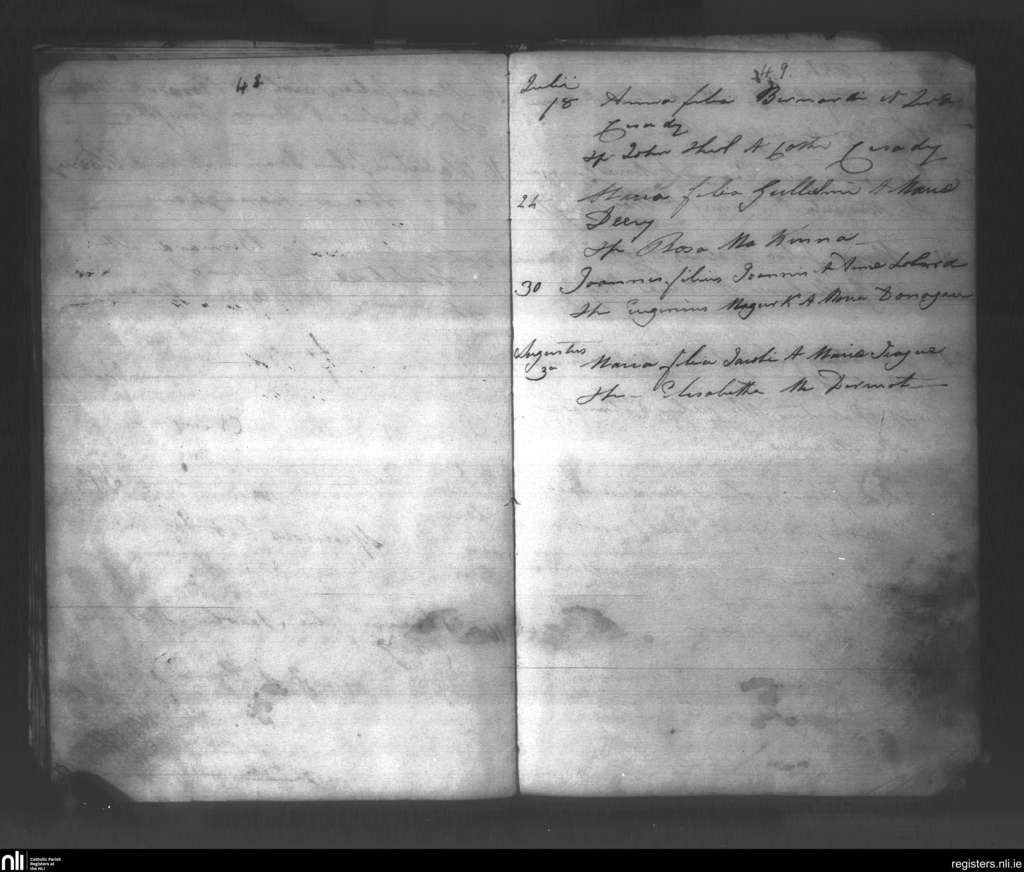 48
49.
Julii
18 Anna filia Bernardi et
Casady
Sp John A Cath Casady
24 Maria filia Gullielmi A Maria
Deery
Sp Rosa Ma Kinna
30 Joannes filius Joannis A Anna
Sp Eugenius Magurk A Donogan
Augustus
3a Maria filia Jacobi A Maria Teague
Sp Elisabetha Mc Dermot
nli
Catholic Parish
Registers at
the NLI
registers.nli.ie